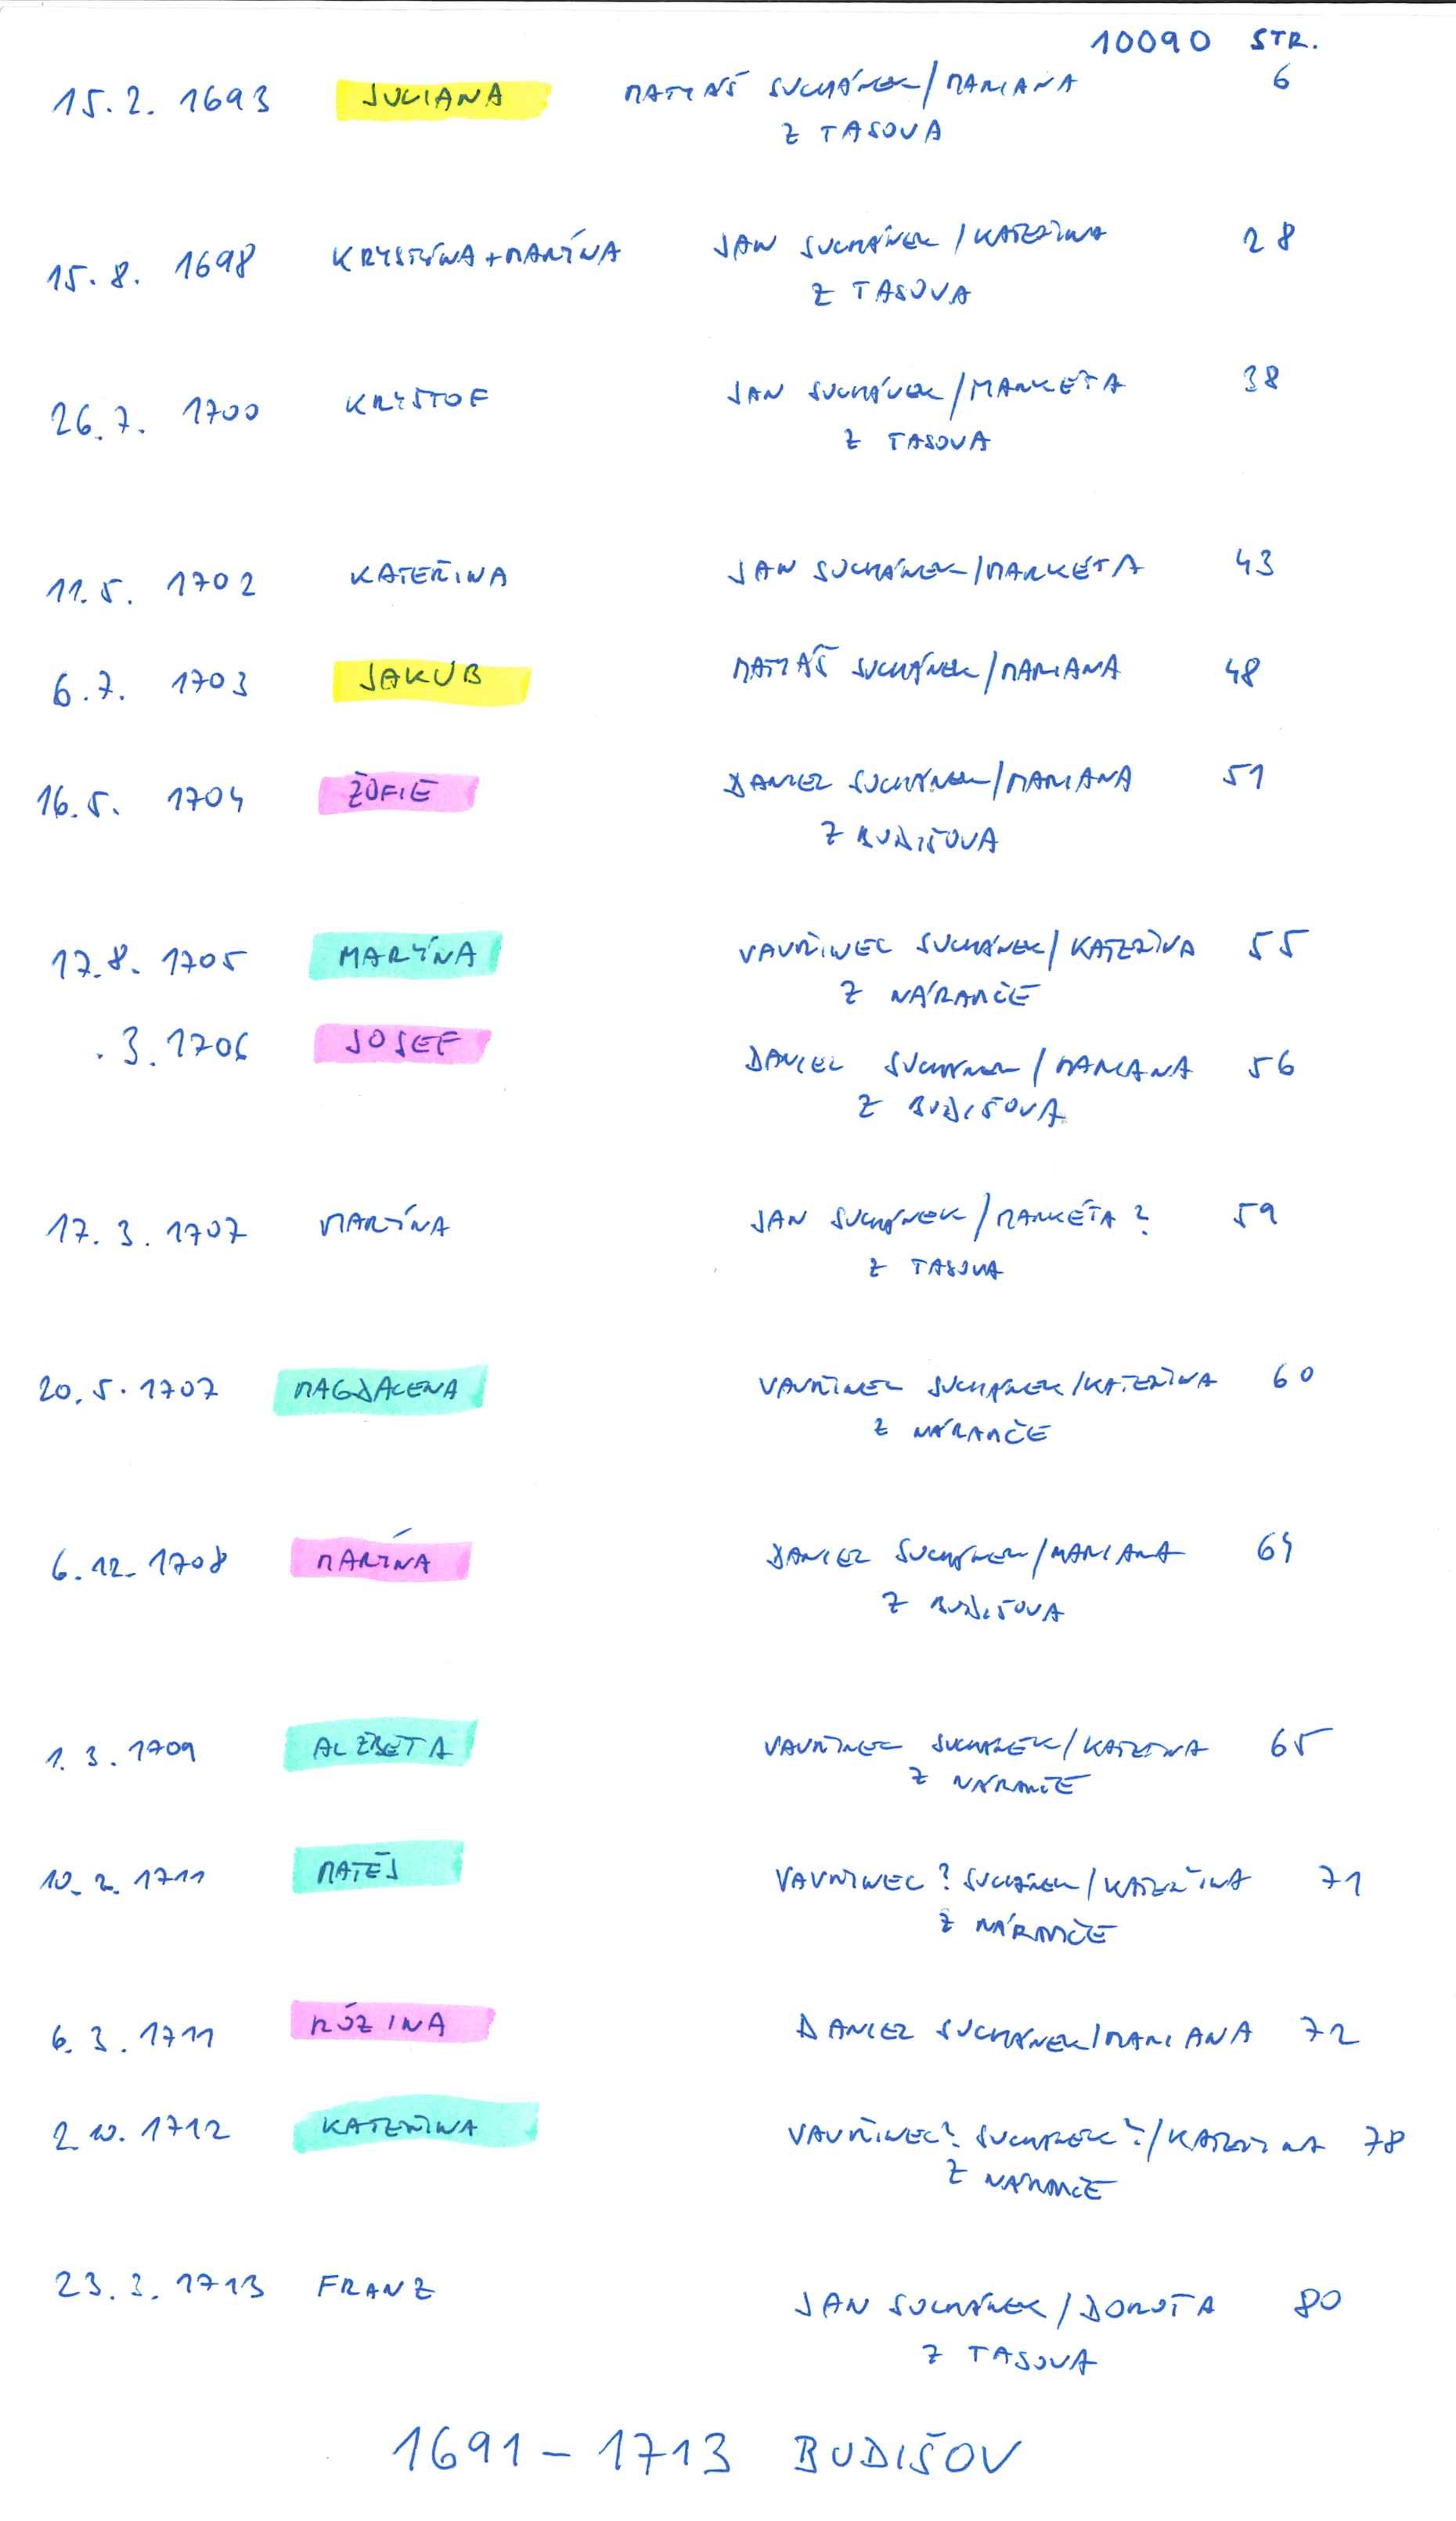 10090 STR.
15.2. 1693 JULIANA MATYÁŠ SUCHÁNEK/MARIANA 6
Z TASOVA
15.8. 1698 KRYSTÝNA+MARÍNA JAN SUCHÁNEK/KATEŘINA 28
Z TASOVA
26.7. 1700 KRYŠTOF JAN SUCHÁNEK/MARKÉTA 38
Z TASOVA
11.5. 1702 KATEŘINA JAN SUCHÁNEK/MARKÉTA 43
6.7. 1703 JAKUB MATYÁŠ SUCHÁNEK/MARIANA 48
16.5. 1704 ŽOFIE DANIEL SUCHÁNEK/MARIANA 51
Z BUDIŠOVA
17.8. 1705 MARÝNA VAVŘINEC SUCHÁNEK/KATEŘINA 55
Z NÁRAMČE
.3.1706 JOSEF DANIEL SUCHÁNEK/MARIANA 56
Z BUDIŠOVA
17.3.1707 MARÍNA JAN SUCHÁNEK/MARKÉTA? 59
Z TASOVA
20.5.1707 MAGDALENA VAVŘINEC SUCHÁNEK/KATEŘINA 60
Z NÁRAMČE
6.12.1708 MARÍNA DANIEL SUCHÁNEK/MARIANA 64
Z BUDIŠOVA
1.3.1709 ALŽBETA VAVŘINEC SUCHÁNEK/KATEŘINA 65
Z NÁRAMČE
10.2.1711 MATĚJ VAVŘINEC? SUCHÁNEK/KATEŘINA 71
Z NÁRAMČE
6.3.1711 RÓZINA DANIEL SUCHÁNEK/MARIANA 72
2.10.1712 KATEŘINA VAVŘINEC? SUCHÁNEK?/KATEŘINA 78
Z NÁRAMČE
23.3.1713 FRANZ JAN SUCHÁNEK/DOROTA 80
Z TASOVA
1691-1713 BUDIŠOV